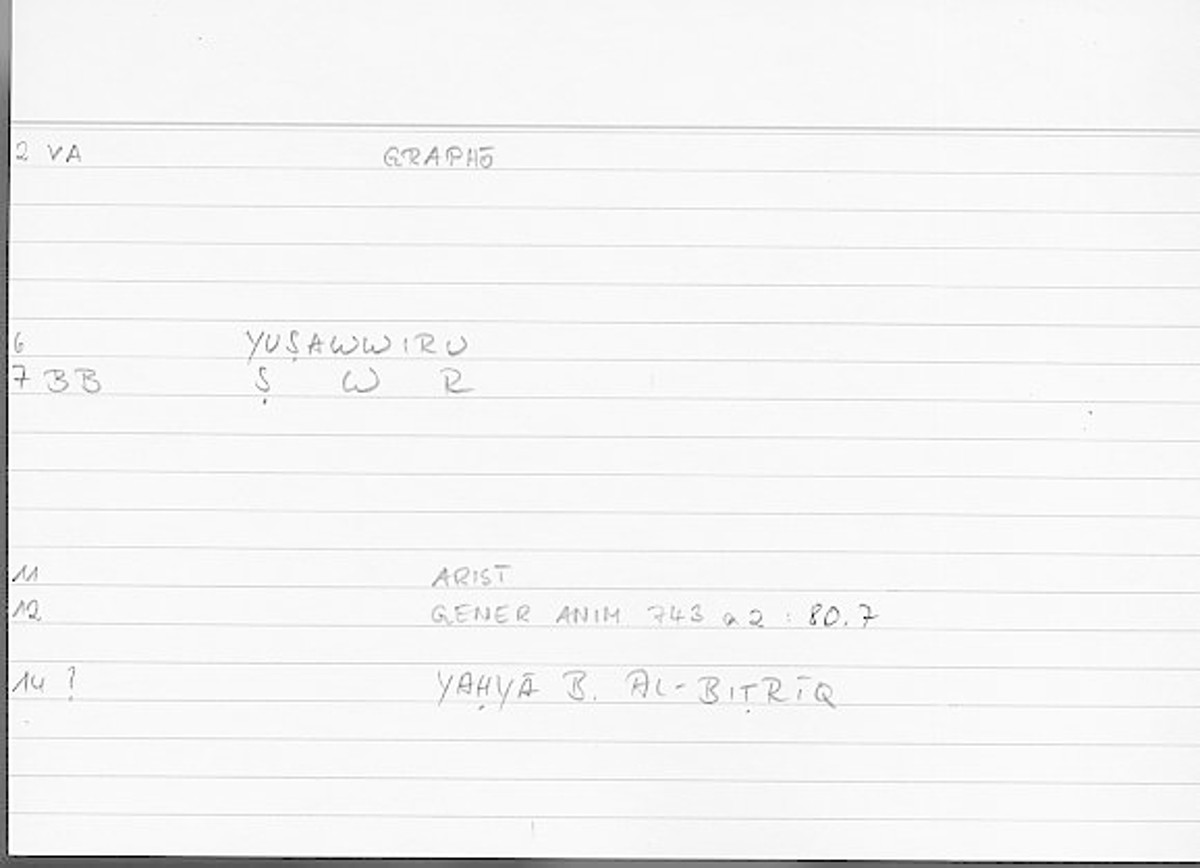 2 VA GRAPHŌ
6 YUṢAWWIRU
7 BB Ṣ W R
11 ARIST
12 GENER ANIM 743 a 2 : 80.7
14 ? YAḤYĀ B. AL-BIṬRĪQ